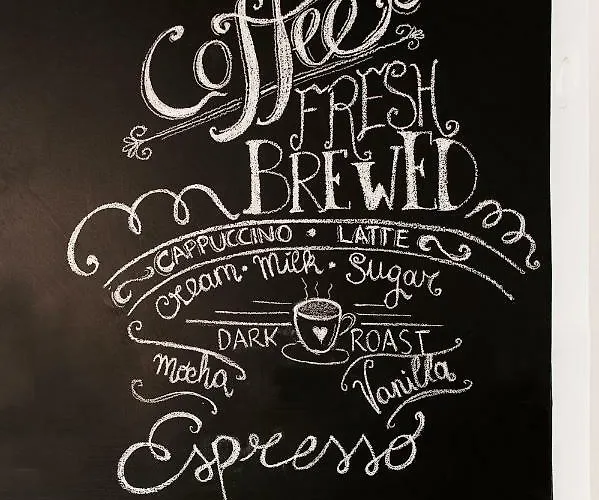 Coffee
FRESH
BREWED
CAPPUCCINO • LATTE
Cream • Milk • Sugar
DARK ROAST
Mocha Vanilla
Espresso